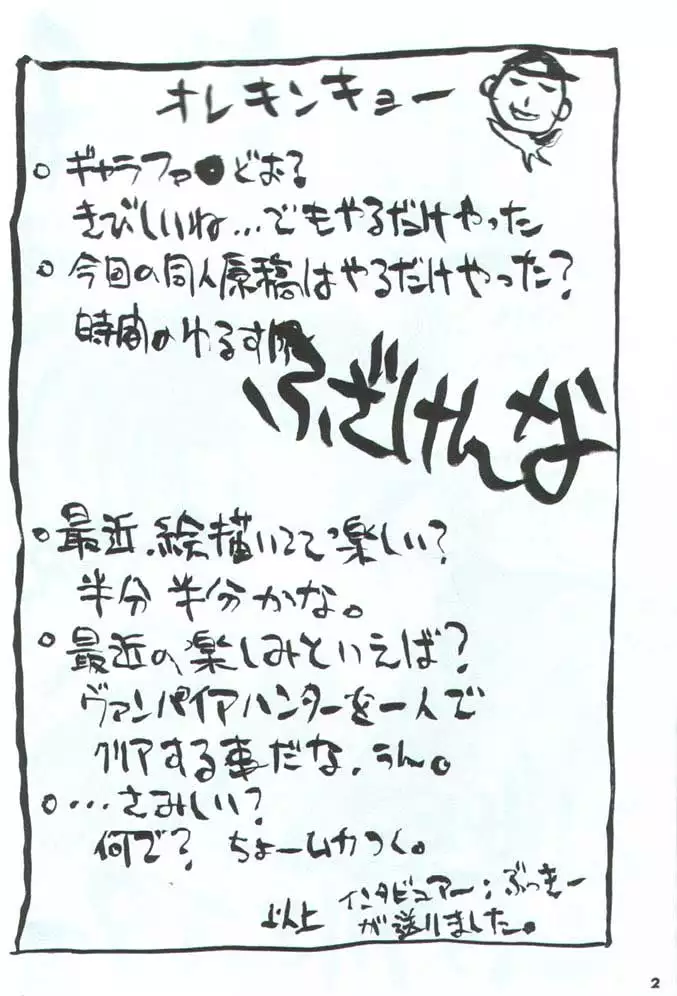 オレキンキョー
○ ギャラファ●どお?
きびしいね…でもやるだけやった
○ 今回の同人原稿はやるだけやった?
時間のゆるす限
ふざけんな
○ 最近、絵描いてて楽しい?
半分半分かな。
○ 最近の楽しみといえば?
ヴァンパイアハンターを一人で
クリアする事だな、うん。
○ …さみしい?
何で? ちょームカつく。
インタビュアー:ぶっきー
以上 が送りました。
2